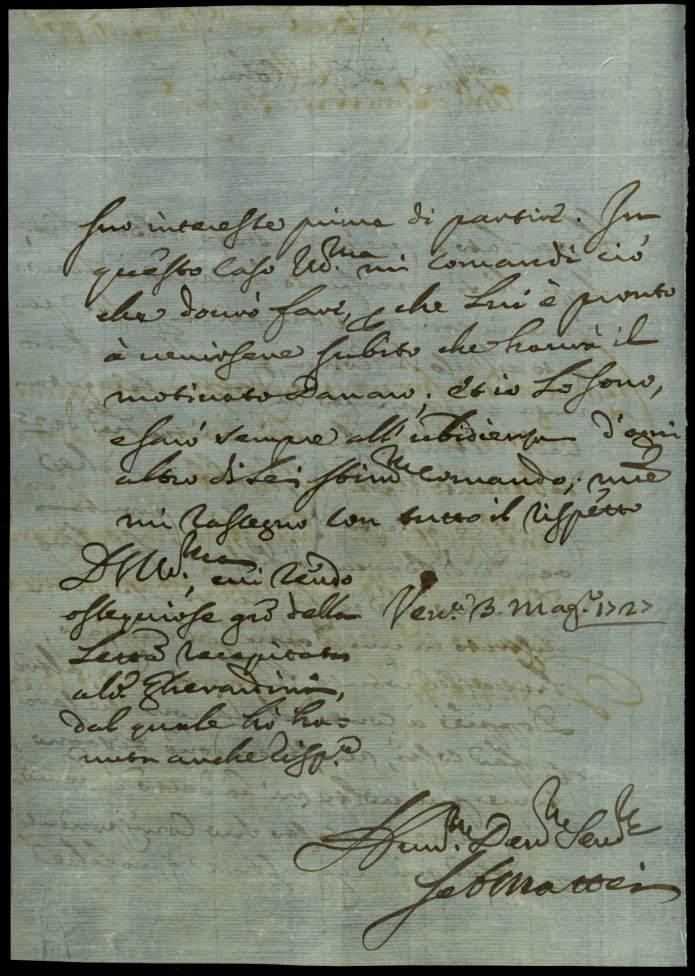 suo interesse prima di partire. In
questo caso V.S. Ill.ma mi comandi ciò
che dovrò fare, che Lui è pronto
à venirsene subito che haurà il
motivato Danaro; et io Lo sono,
e sarò sempre all'ubidienza d'ogni
altro di Lei stim.mo comando, m̃e
mi rassegno con tutto il rispetto
D.V.S. Ill.ma, e mi rendo
ossequiose grẽ della
Lettrã recapitata
alo Gherardini,
dal quale hò ha=
uuta anche risp.ta
Ven.a 3. Mag.o 1727
Hum.mo Deu.mo Seru.re